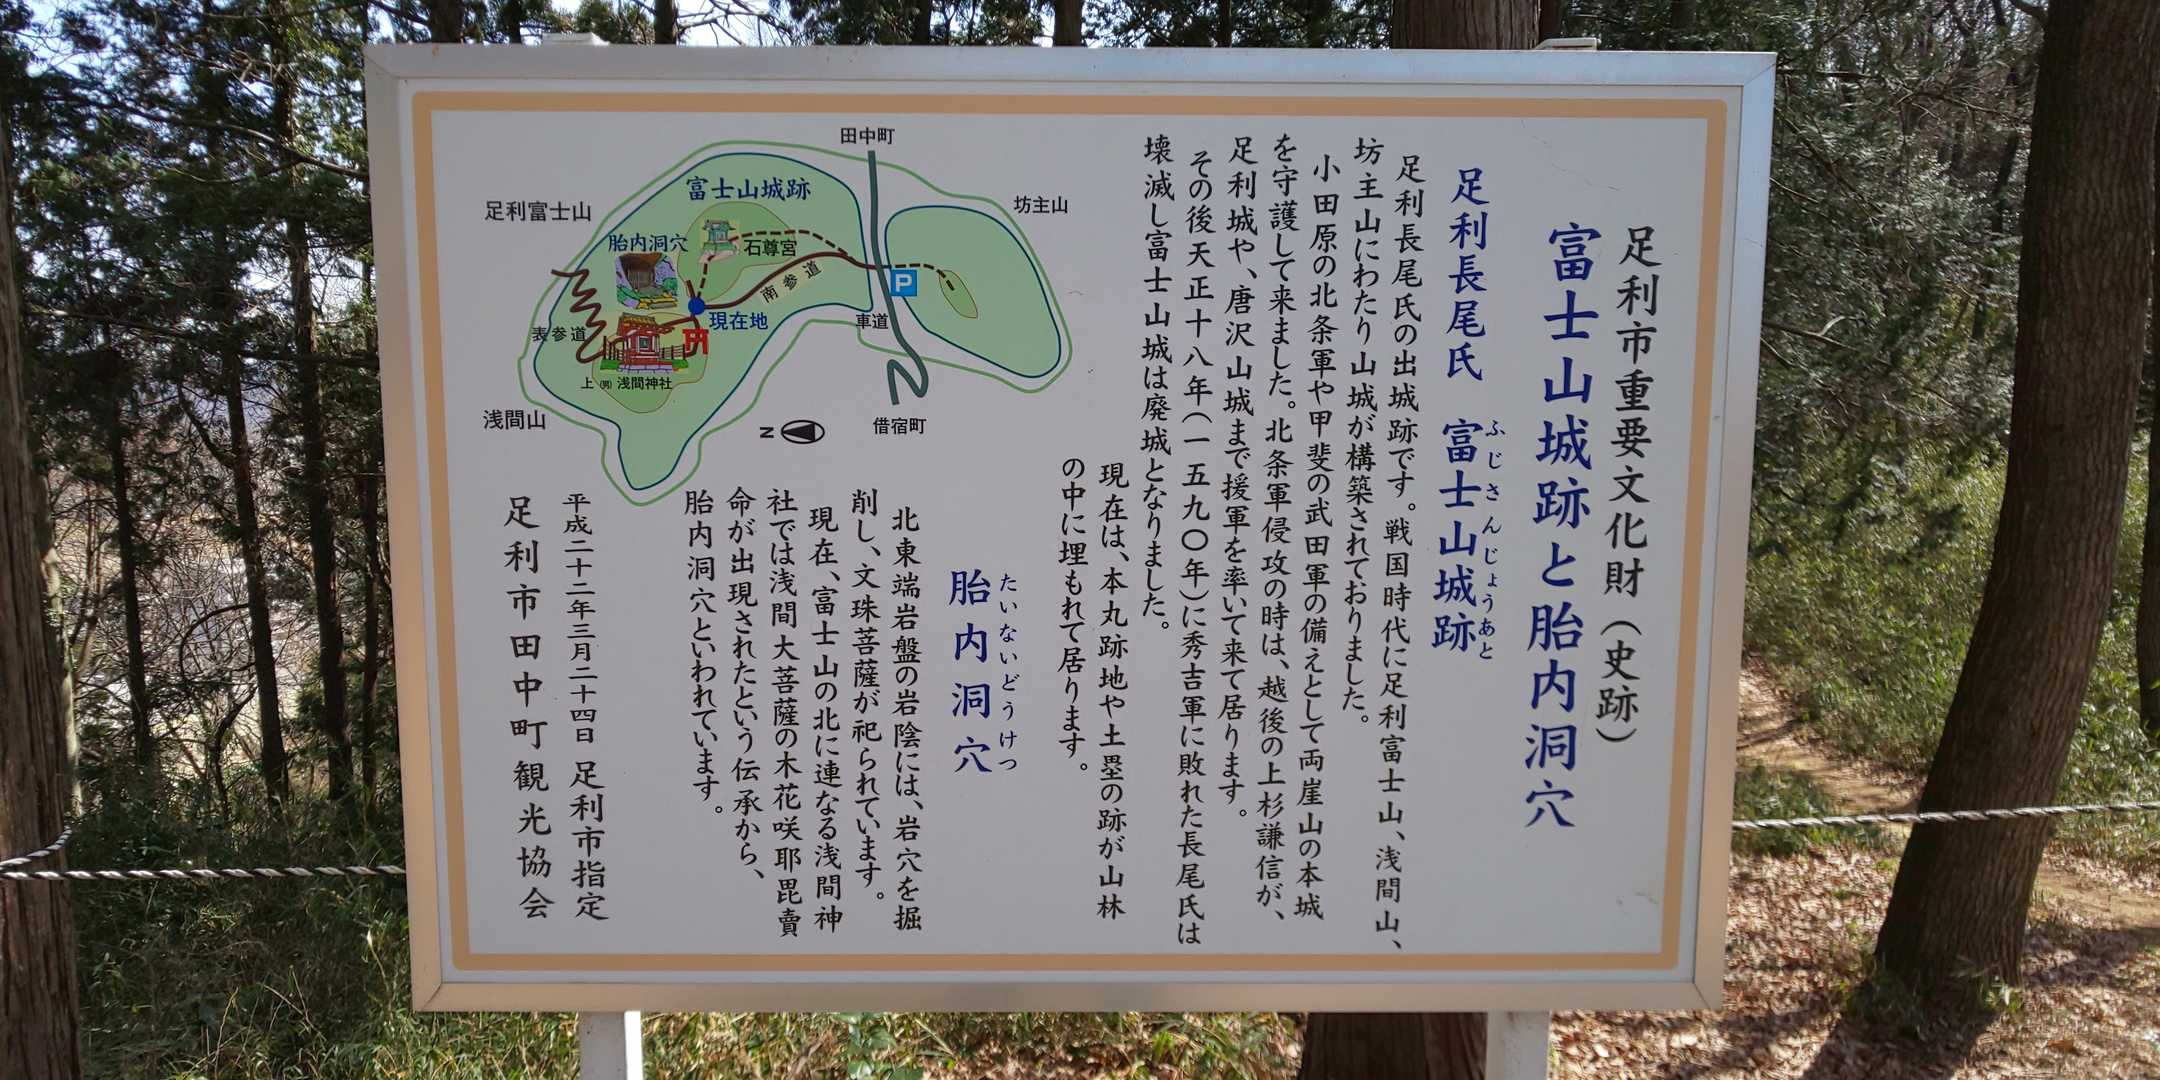 足利市重要文化財（史跡）
富士山城跡と胎内洞穴
足利長尾氏　富士山城跡
ふじさんじょうあと
足利長尾氏の出城跡です。戦国時代に足利富士山、浅間山、
坊主山にわたり山城が構築されておりました。
小田原の北条軍や甲斐の武田軍の備えとして両崖山の本城
を守護して来ました。北条軍侵攻の時は、越後の上杉謙信が、
足利城や、唐沢山城まで援軍を率いて来て居ります。
その後天正十八年（一五九〇年）に秀吉軍に敗れた長尾氏は
壊滅し富士山城は廃城となりました。
現在は、本丸跡地や土塁の跡が山林
の中に埋もれて居ります。
胎内洞穴
たいないどうけつ
北東端岩盤の岩陰には、岩穴を掘
削し、文珠菩薩が祀られています。
現在、富士山の北に連なる浅間神
社では浅間大菩薩の木花咲耶毘賣
命が出現されたという伝承から、
胎内洞穴といわれています。
平成二十二年三月二十四日　足利市指定
足利市田中町観光協会
田中町
富士山城跡
足利富士山
坊主山
胎内洞穴
石尊宮
南参道
P
現在地
車道
表参道
上㈚浅間神社
浅間山
N
借宿町